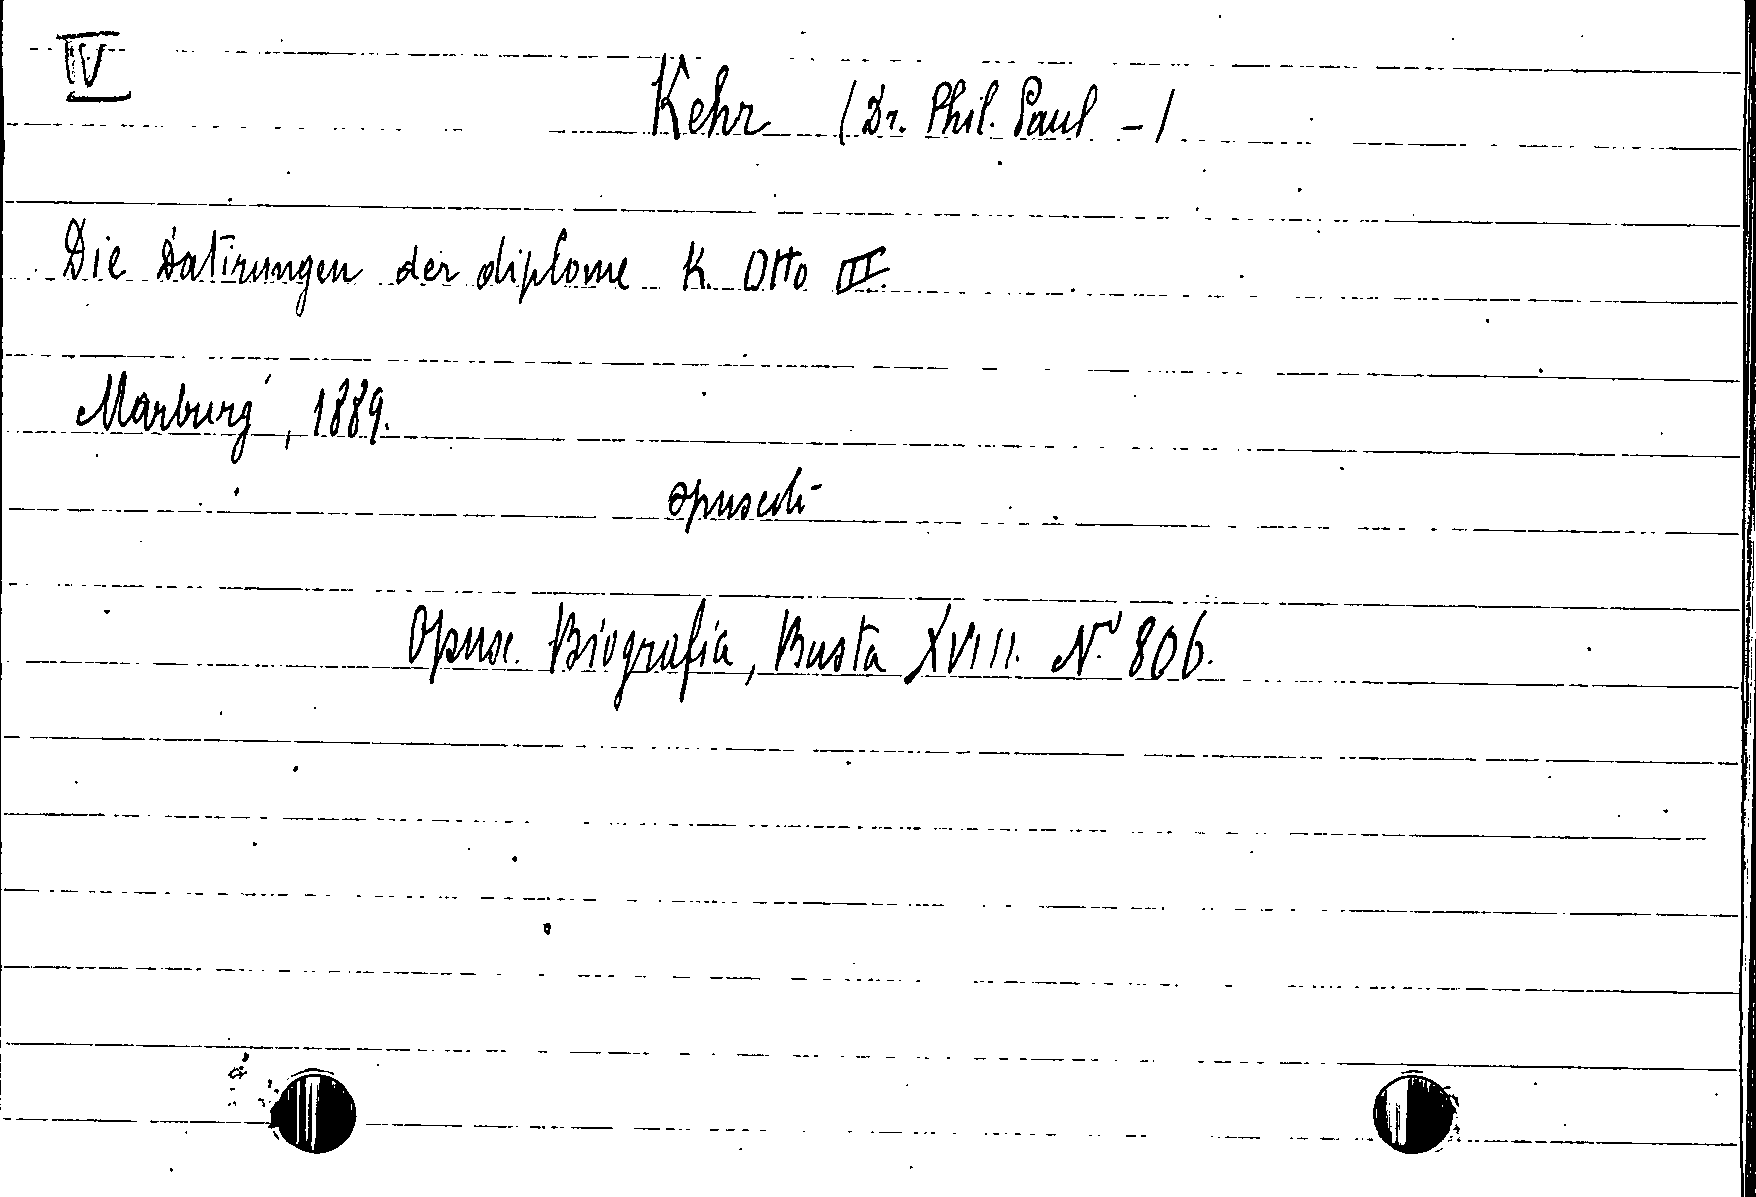 IV
Kehr (Dr. Phil. Paul -)
Die Datirungen der diplome K. Otto III.
Marburg, 1889.
opuscoli
Opusc. Biografia, Busta XVIII. N. 806.